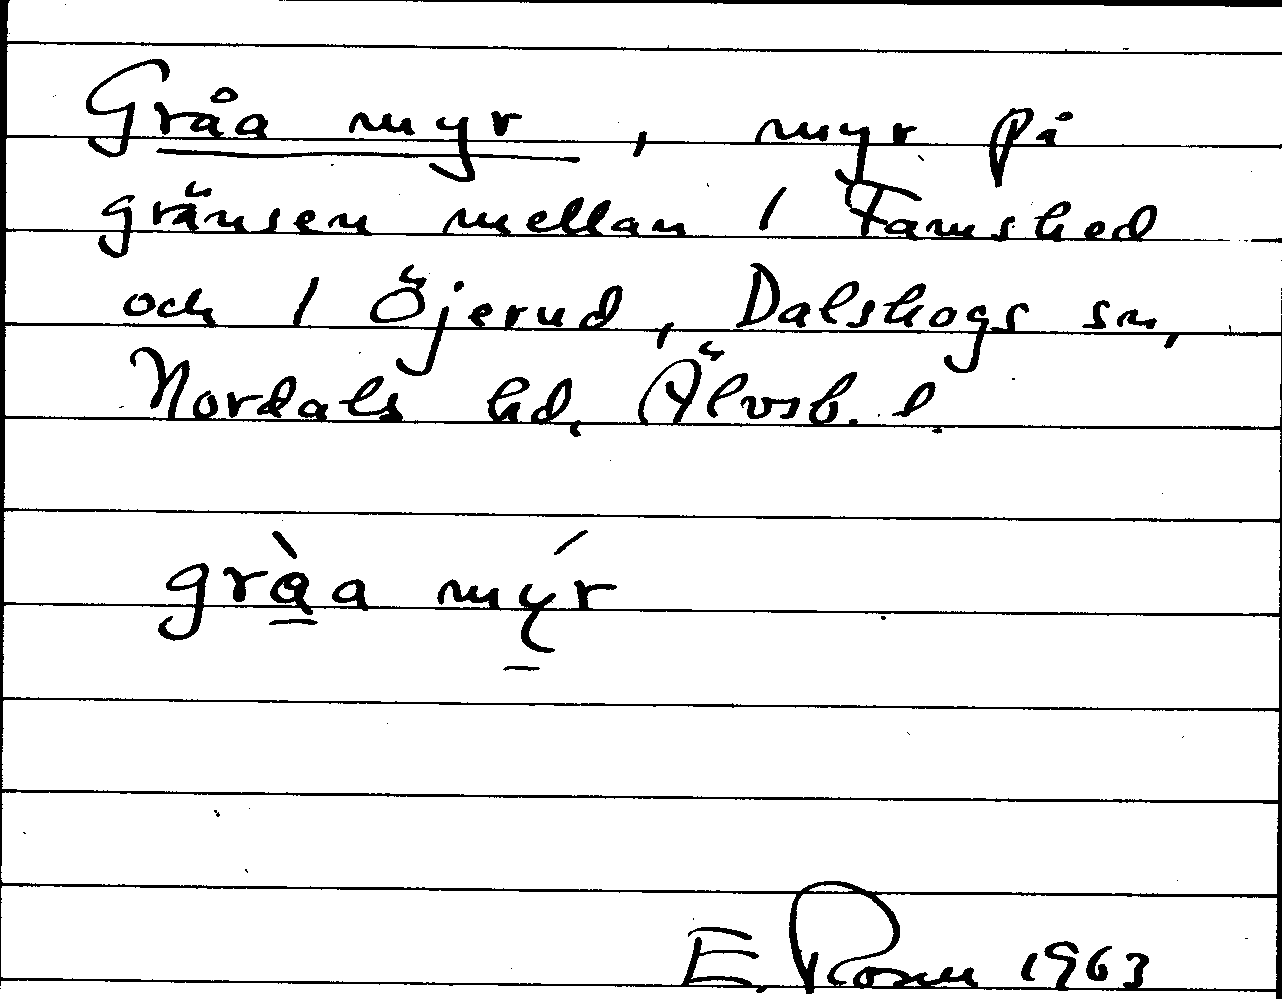 Gråa myr, myr på
gränsen mellan 1 Famshed
och 1 Öjerud, Dalskogs sn,
Nordals hd, Älvsb. l.
gràa mýr
E. Rosen 1963